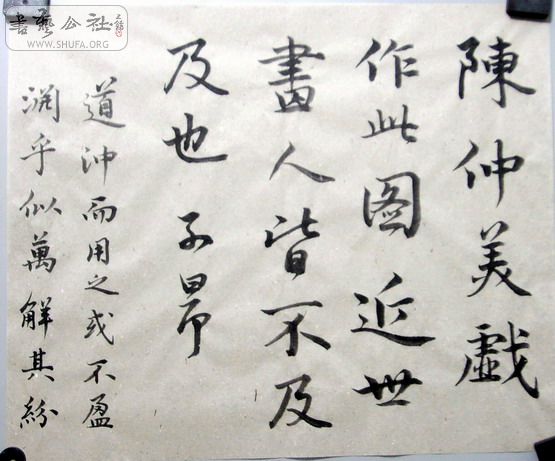 陳仲美戲
作此图近世
畫人皆不及
及也子昂
道沖而用之或不盈
渊乎似萬解其紛
書藝公社
WWW.SHUFA.ORG